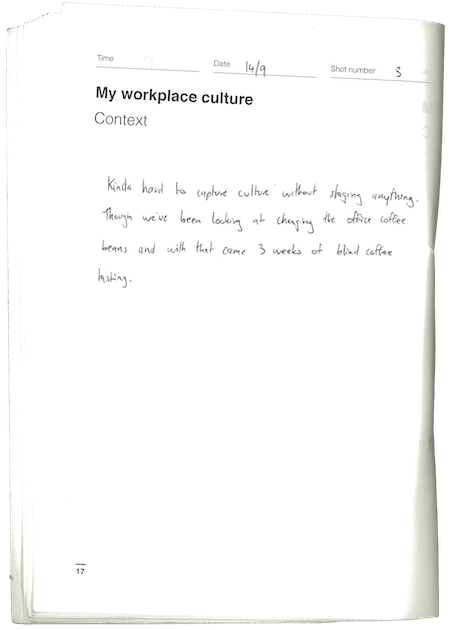 Time
Date 14/9
Shot number 3
My workplace culture
Context
Kinda hard to capture culture without staging anything.
Though we've been looking at changing the office coffee
beans and with that came 3 weeks of blind coffee
tasting.
17